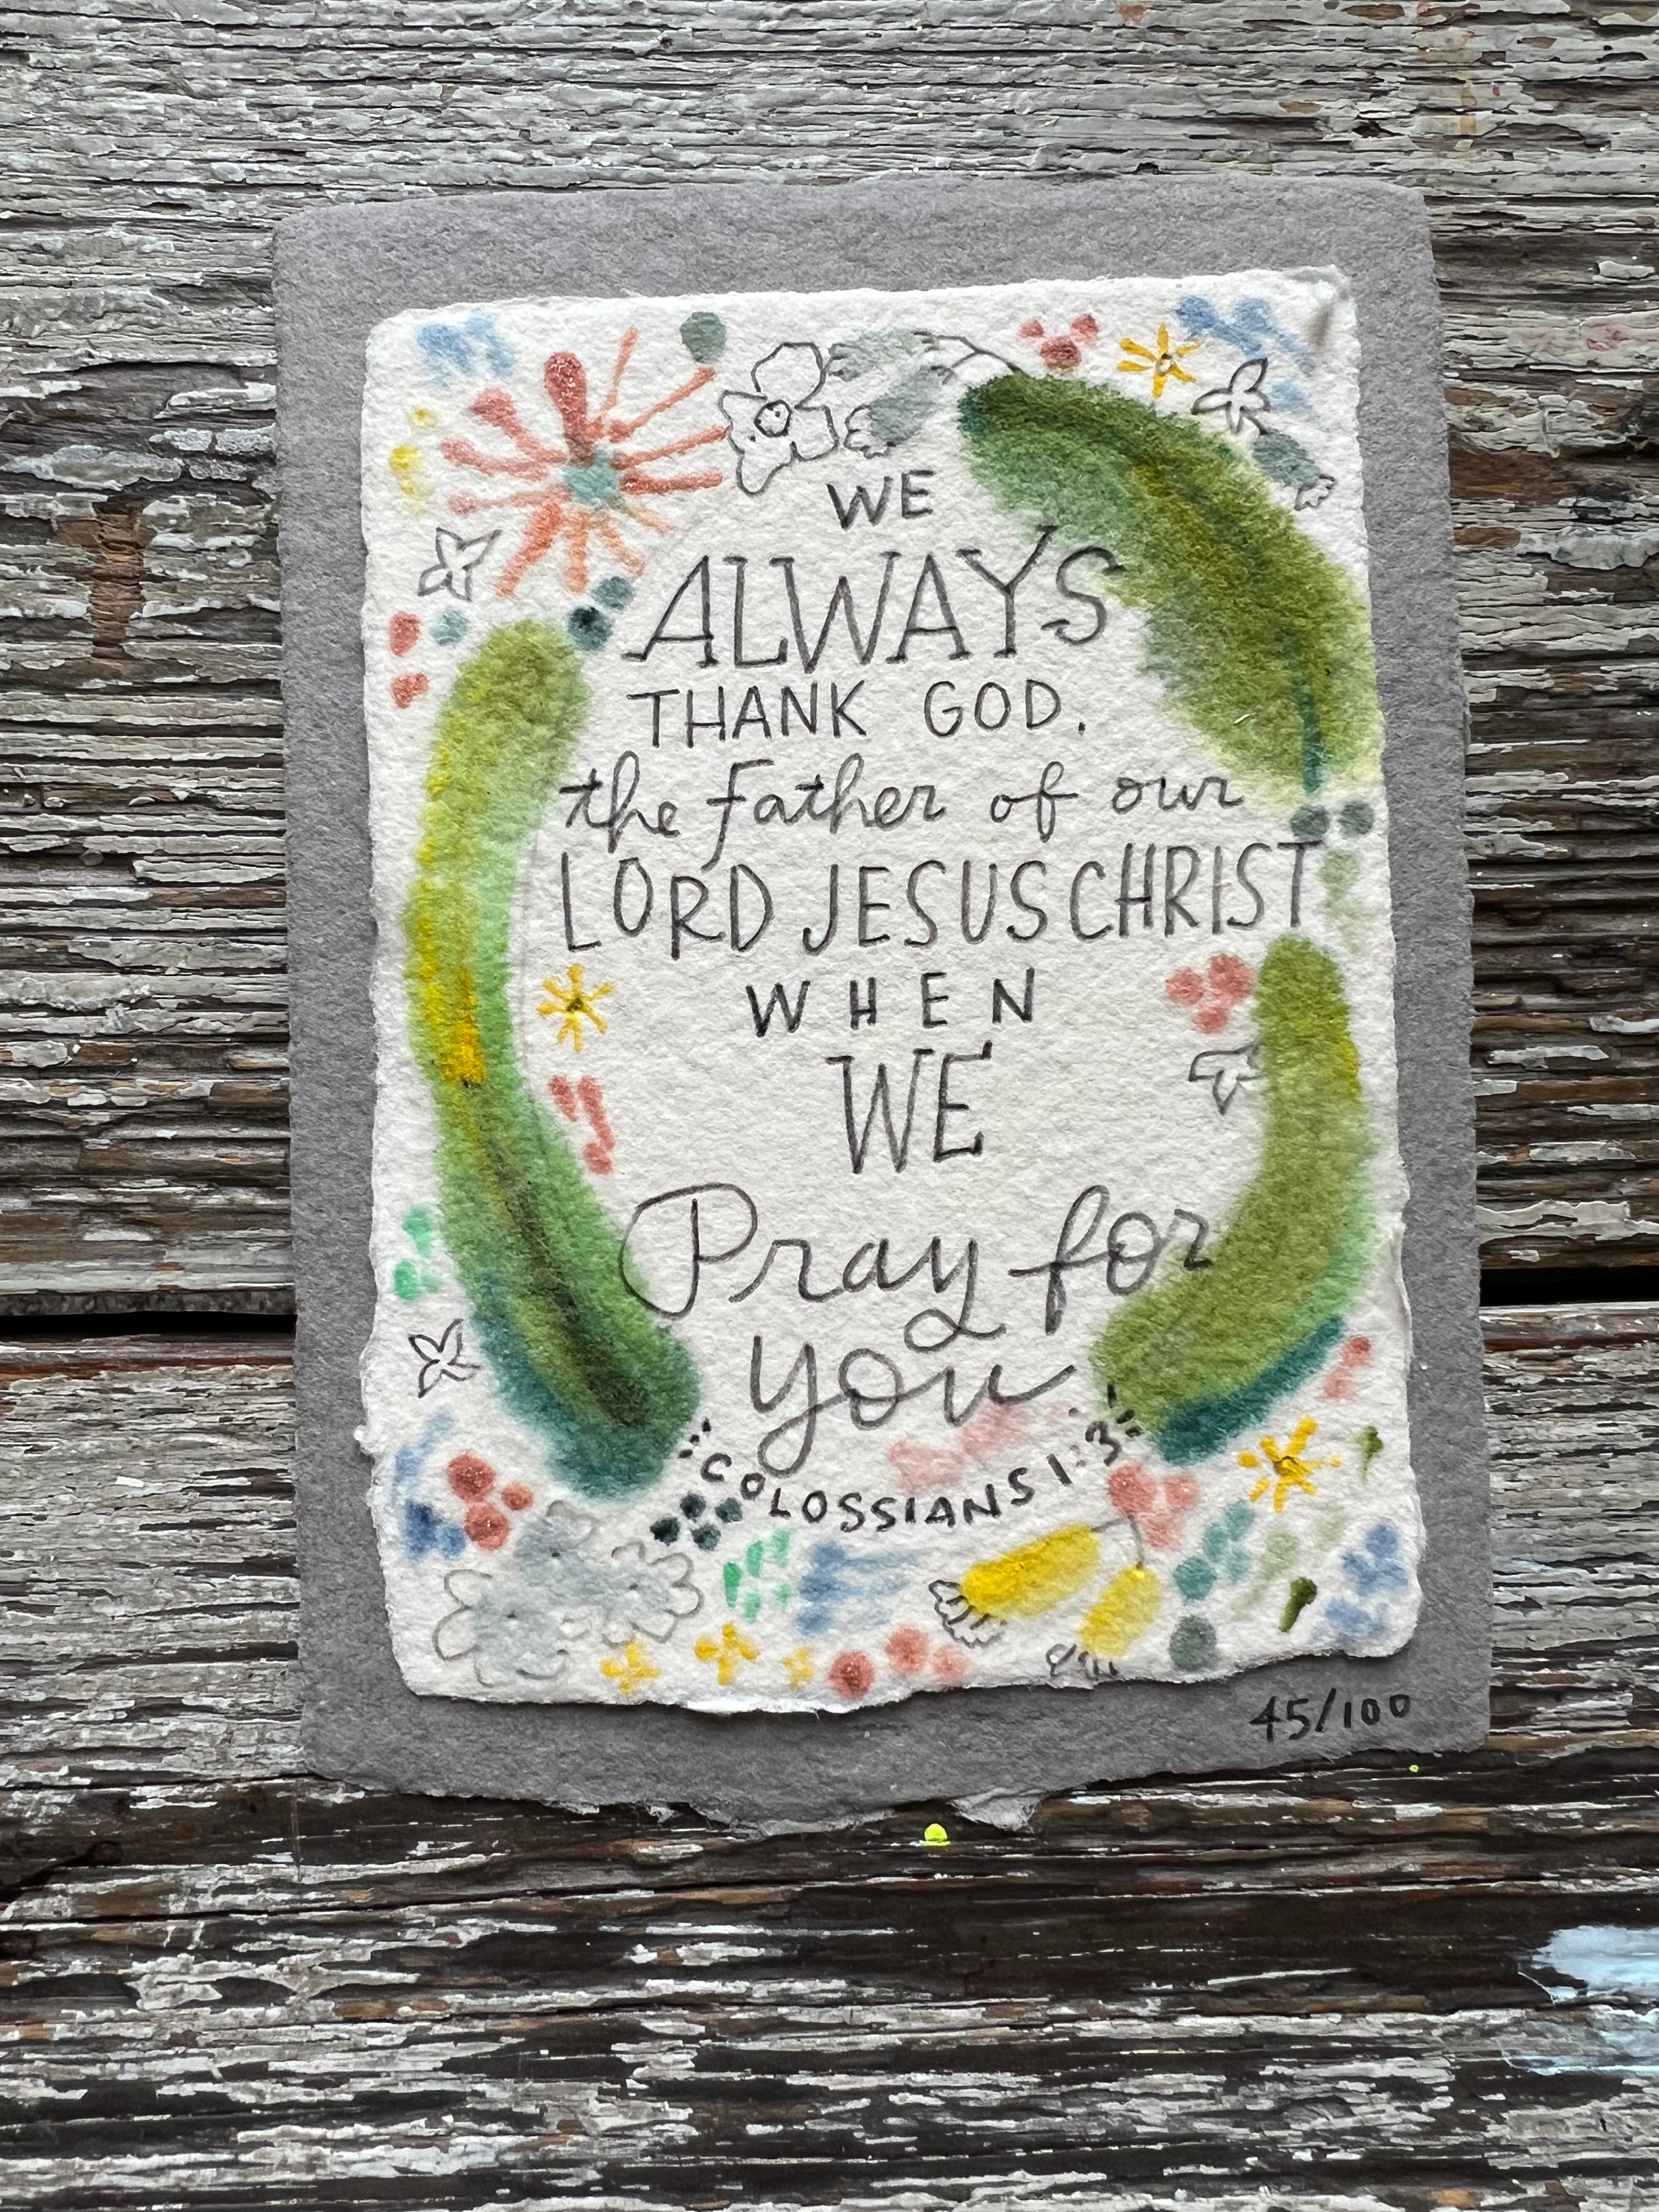 WE
ALWAYS
THANK GOD,
the Father of our
LORD JESUS CHRIST
WHEN
WE
Pray for
you
COLOSSIANS 1:3
45/100